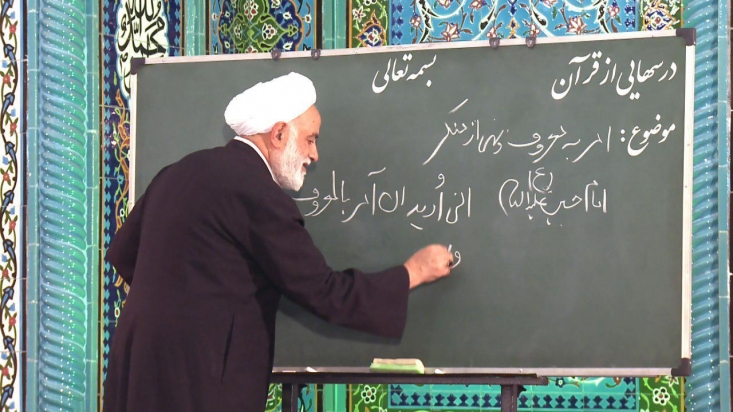 بسمه تعالی
درسهایی از قرآن
موضوع: امر به معروف و نهی از منکر
امام حسین (ع) انی اُرید ان آمر بالمعروف
و